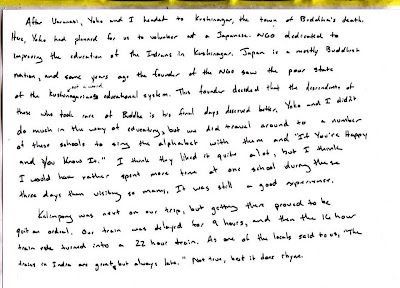 After Varanasi, Yoko and I headed to Kushinagar, the town of Buddha's death.
Here, Yoko had planned for us to volunteer at a Japanese NGO dedicated to
improving the education of the Indians in Kushinagar. Japan is a mostly Buddhist
nation, and some years ago the founder of the NGO saw the poor state
not a word
of the Kushinagarians educational system. This founder decided that the descendents of
those who took care of Buddha in his final days deserved better. Yoko and I didn't
do much in the way of educating, but we did travel around to a number
of these schools to sing the alphabet with them and "If You're Happy
and You Know It." I think they liked it quite alot, but I think
I would have rather spent more time at one school during these
three days than visiting so many. It was still a good experience.
Kalimpong was next on our trip, but getting there proved to be
quit an ordeal. Our train was delayed for 9 hours, and then the 16 hour
train ride turned into a 22 hour train. As one of the locals said to us, "The
trains in India are great, but always late." Not true, but it does rhyme.